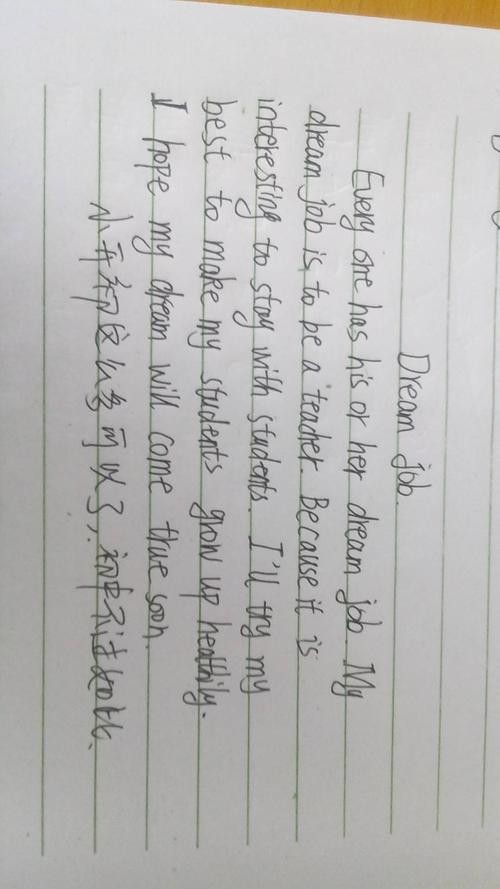 Dream job.
Every one has his or her dream job. My
dream job is to be a teacher. Because it is
interesting to stay with students. I'll try my
best to make my students grow up healthily.
I hope my dream will come true soon.
小升初这么多可以了，初中不过如此.